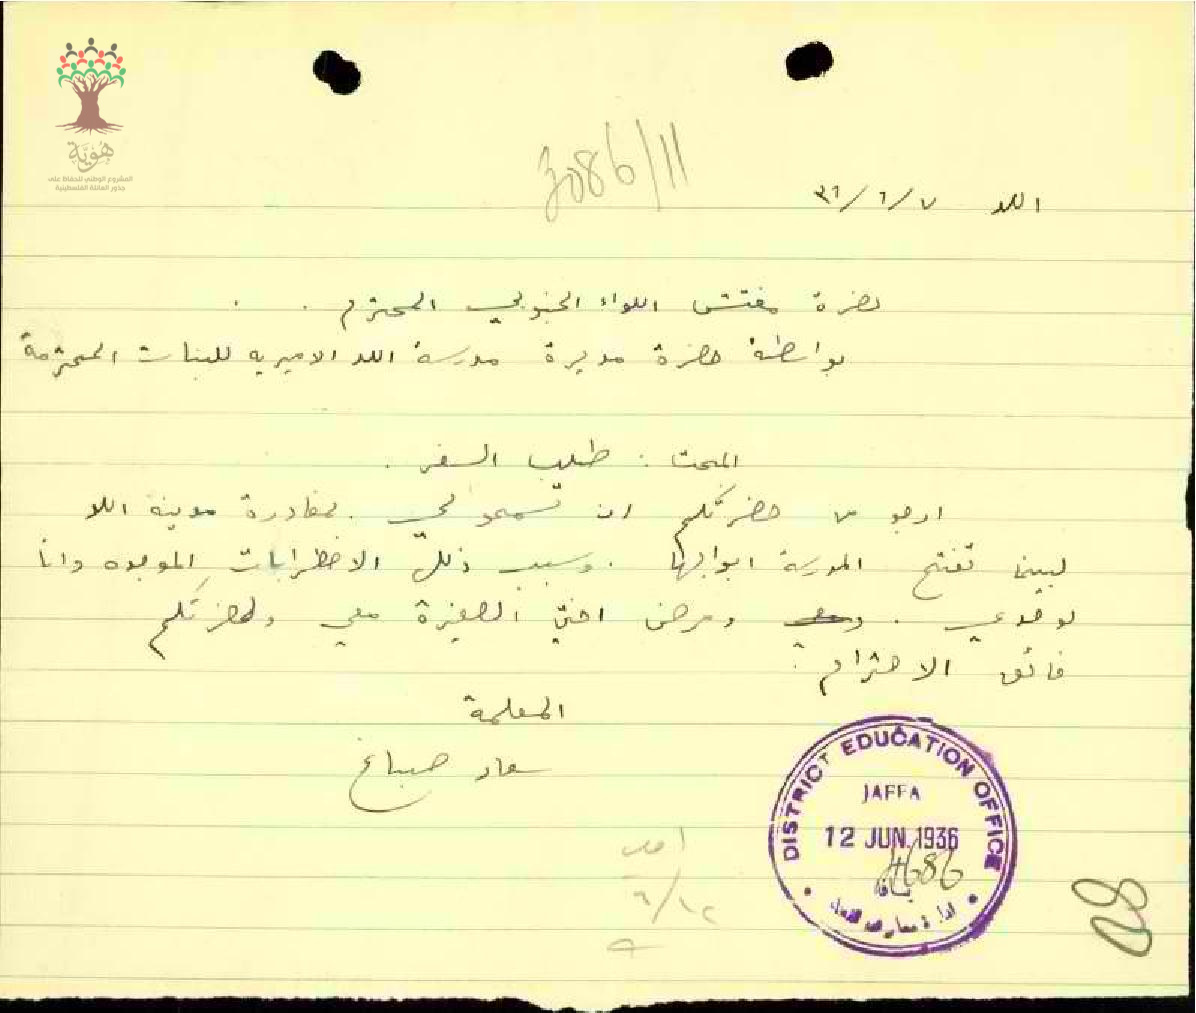 هوية
المشروع الوطني للحفاظ على
جذور العائلة الفلسطينية
3086/11
اللد ٧/٦/٣٦
حضرة مفتش اللواء الجنوبي المحترم .
بواسطة حضرة مديرة مدرسة اللد الاميريه للبنات المحترمة
المبحث : طلب السفر .
ارجو من حضرتكم ان تسمحوا لي بمغادرة مدينة اللد
لبينما تفتح المدرسة ابوابها . وسبب ذلك الاضطرابات الموجوده وانا
لوحدي . ومرض اختي الصغيرة معي ولحضرتكم
فائق الاحترام .
المعلمة
سعاد صباغ
DISTRICT EDUCATION OFFICE
JAFFA
12 JUN. 1936
4686
يافا
ادارة معارف اللواء
٦/١٢
80